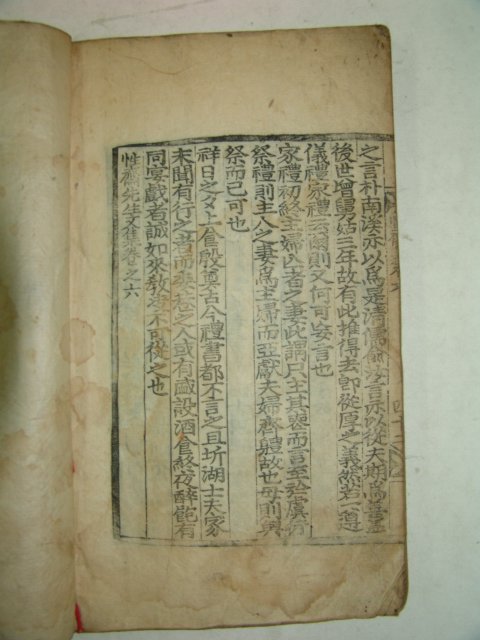 之言朴南溪亦以爲是淸儒
之言亦以從夫期爲
後世增舅姑三年故有此推得去卽從厚之義然若一遵
儀禮家禮云爾則又何可妄言也
家禮初終主婦亡者之妻此謂只主其喪而言至於虞
祭禮則主人之妻爲主婦而亞獻夫婦齊體故也母則與
祭而已可也
祥日之夕上食殷奠古今禮書都不言之且圻湖士夫家
未聞有行之者而
之人或有盛設酒食終夜醉飽有
同宴戲者誠如來敎
不可從之也
性齋先生文集卷之六